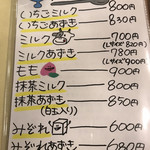 いちごミルク 800円
いちごあずき 830円
ミルク 700円
(Lサイズ820円)
ミルクあずき 780円
(Lサイズ900円)
もも 900円
抹茶ミルク 800円
抹茶あずき 850円
(白玉入り)
みぞれ 600円
みぞれあずき 680円